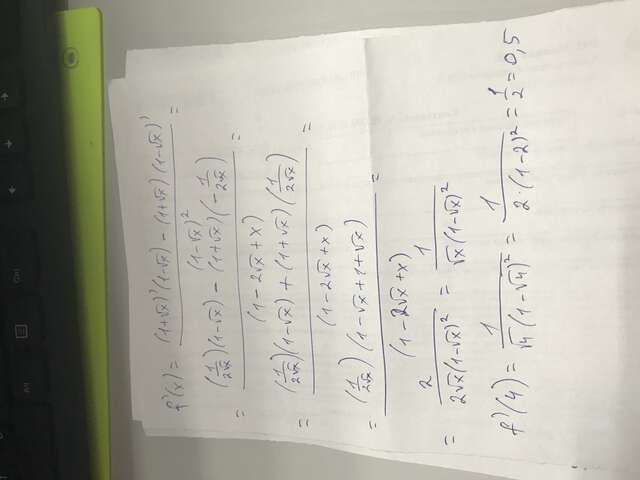 f'(x) = ((1+√x)'(1-√x) - (1+√x)(1-√x)') / (1-√x)² =
= ((1/(2√x))(1-√x) - (1+√x)(-1/(2√x))) / (1-2√x+x) =
= ((1/(2√x))(1-√x) + (1+√x)(1/(2√x))) / (1-2√x+x) =
= ((1/(2√x))(1-√x+1+√x)) / (1-2√x+x) =
= 2 / (2√x(1-√x)²) = 1 / (√x(1-√x)²)
f'(4) = 1 / (√4(1-√4)²) = 1 / (2·(1-2)²) = 1/2 = 0,5
Ctrl